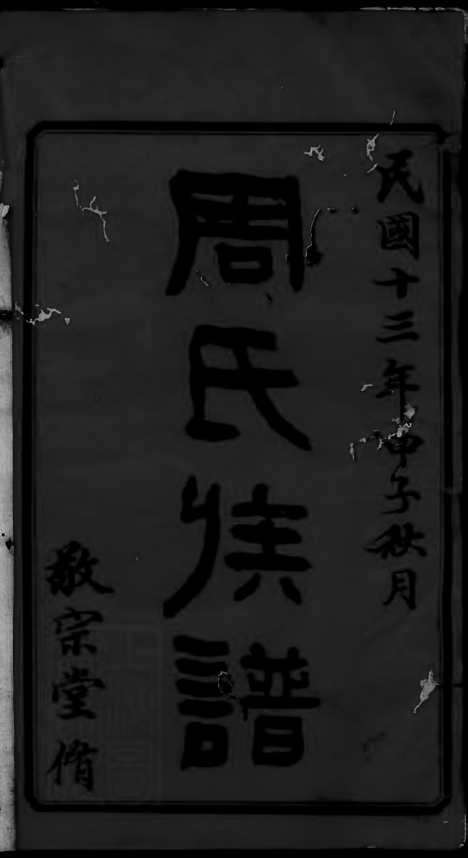 民國十三年甲子秋月
周氏族譜
敬宗堂脩